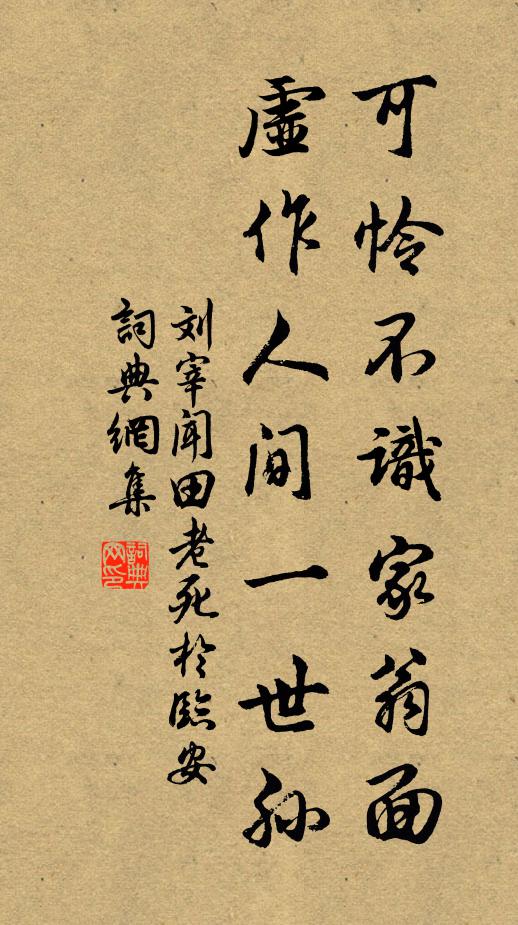 可怜不識家翁面
虛作人间一世孙
刘宰闻田老死於臨安
詞典網集
詞典
网印